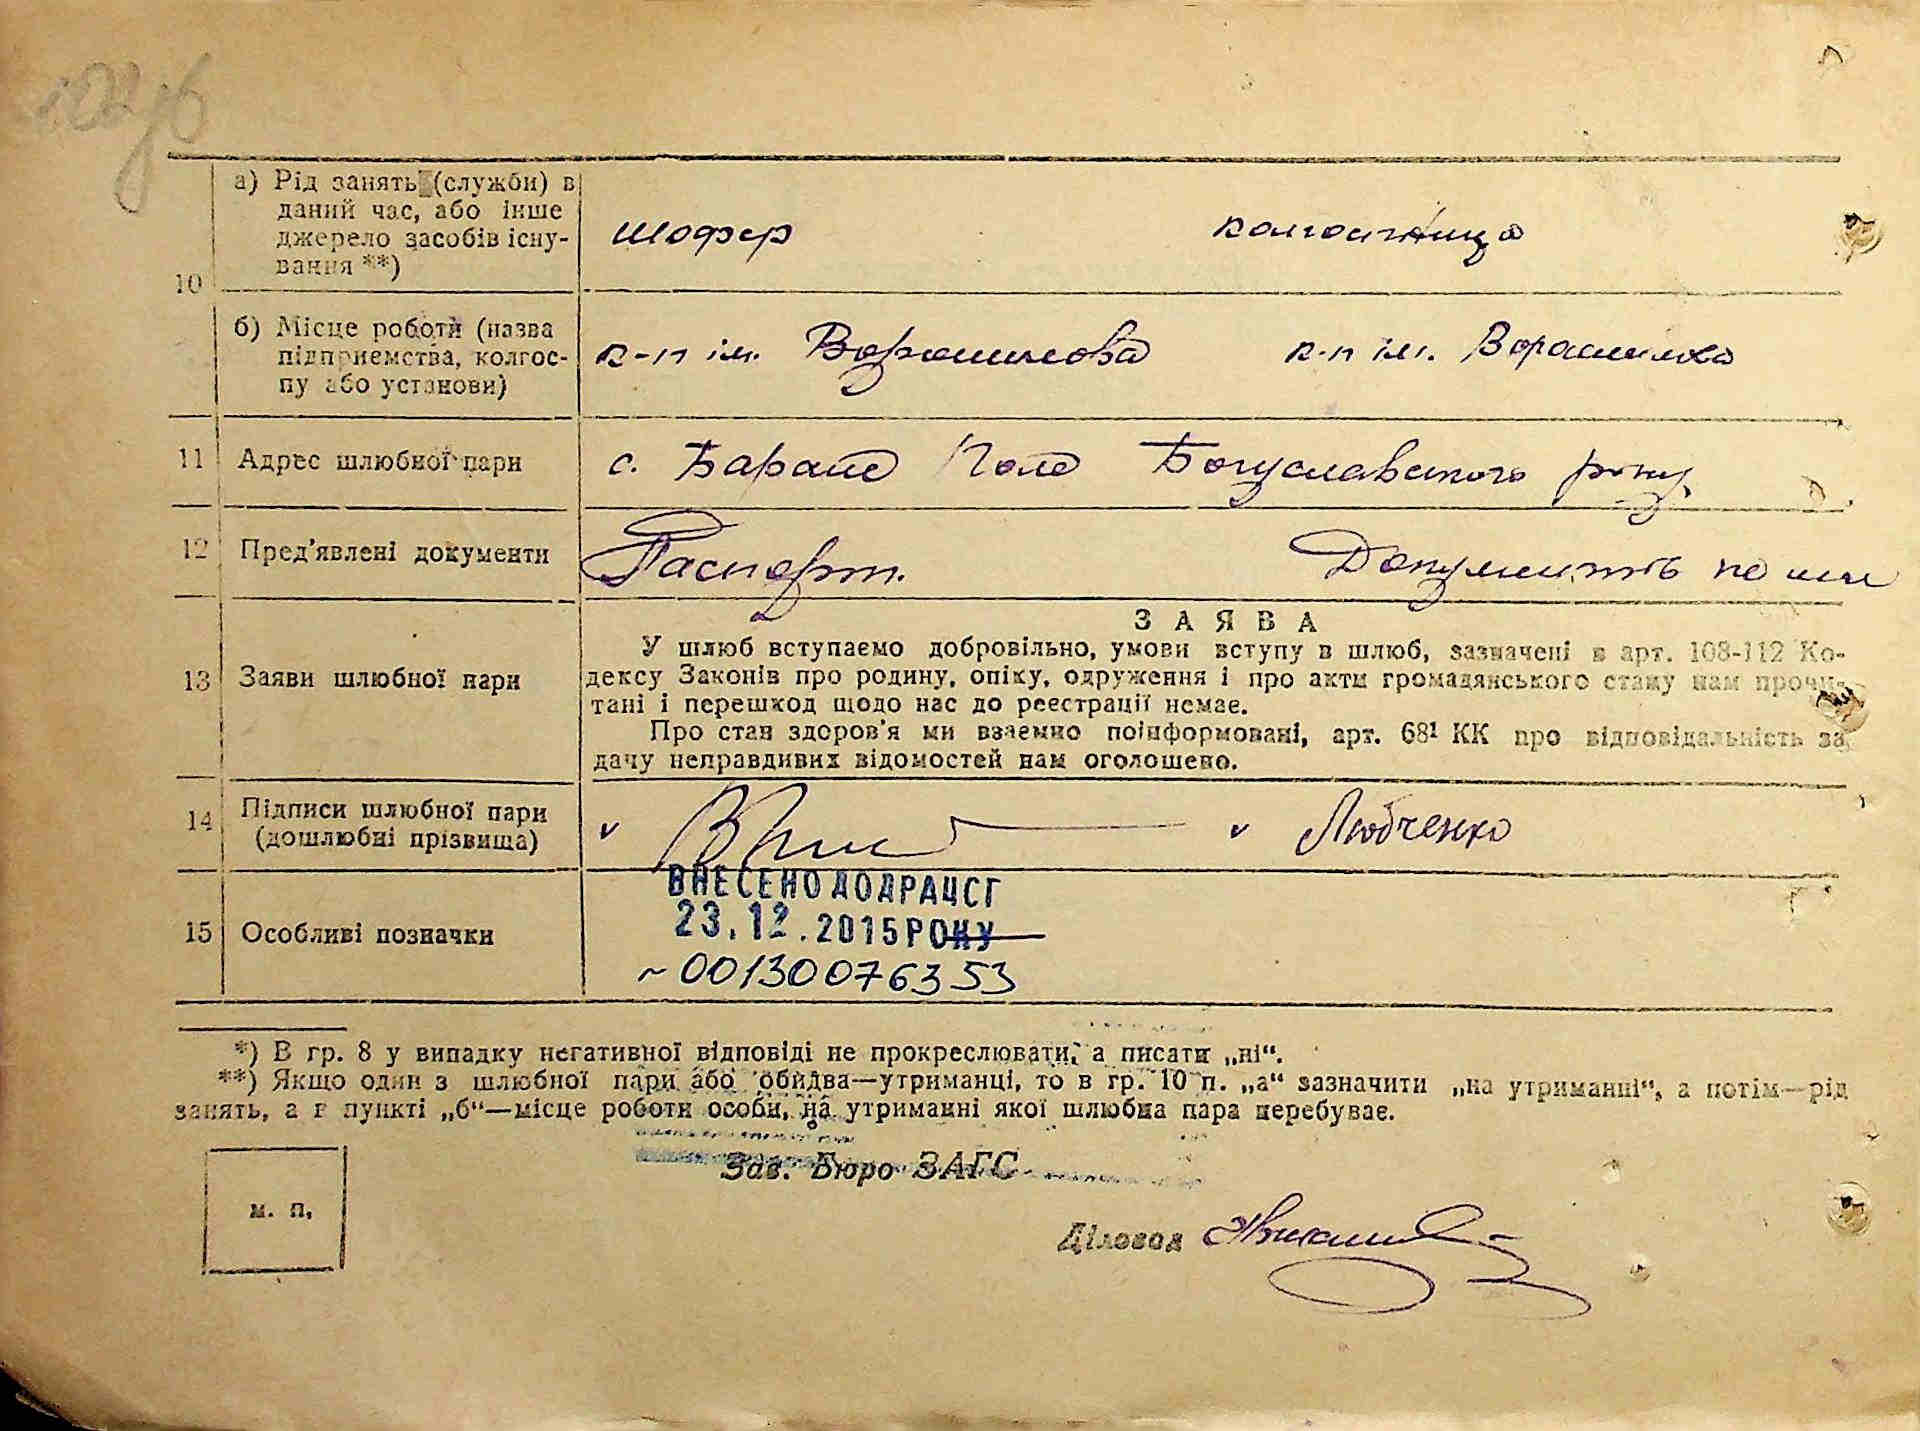 10
а) Рід занять (служби) в
даний час, або інше
джерело засобів існу-
вання **)
шофер
колгоспниця
б) Місце роботи (назва
підприємства, колгос-
пу або установи)
к-п ім. Ворошилова
к-п ім. Ворошилова
11
Адрес шлюбної пари
с. Баране Поле Богуславського р-ну
12
Пред'явлені документи
Паспорт.
Документів не має
13
Заяви шлюбної пари
ЗАЯВА
У шлюб вступаємо добровільно, умови вступу в шлюб, зазначені в арт. 108-112 Ко-
дексу Законів про родину, опіку, одруження і про акти громадянського стану нам прочи-
тані і перешкод щодо нас до реєстрації немає.
Про стан здоров'я ми взаємно поінформовані, арт. 68¹ КК про відповідальність за
дачу неправдивих відомостей нам оголошено.
14
Підписи шлюбної пари
(дошлюбні прізвища)
v
v Любченко
15
Особливі позначки
ВНЕСЕНО ДО ДРАЦСГ
23.12.2015 РОКУ
~ 00130076353
*) В гр. 8 у випадку негативної відповіді не прокреслювати, а писати „ні“.
**) Якщо один з шлюбної пари або обидва—утриманці, то в гр. 10 п. „а“ зазначити „на утриманні“, а потім—рід
занять, а в пункті „б“—місце роботи особи, на утриманні якої шлюбна пара перебуває.
Зав. Бюро ЗАГС
м. п.
Діловод